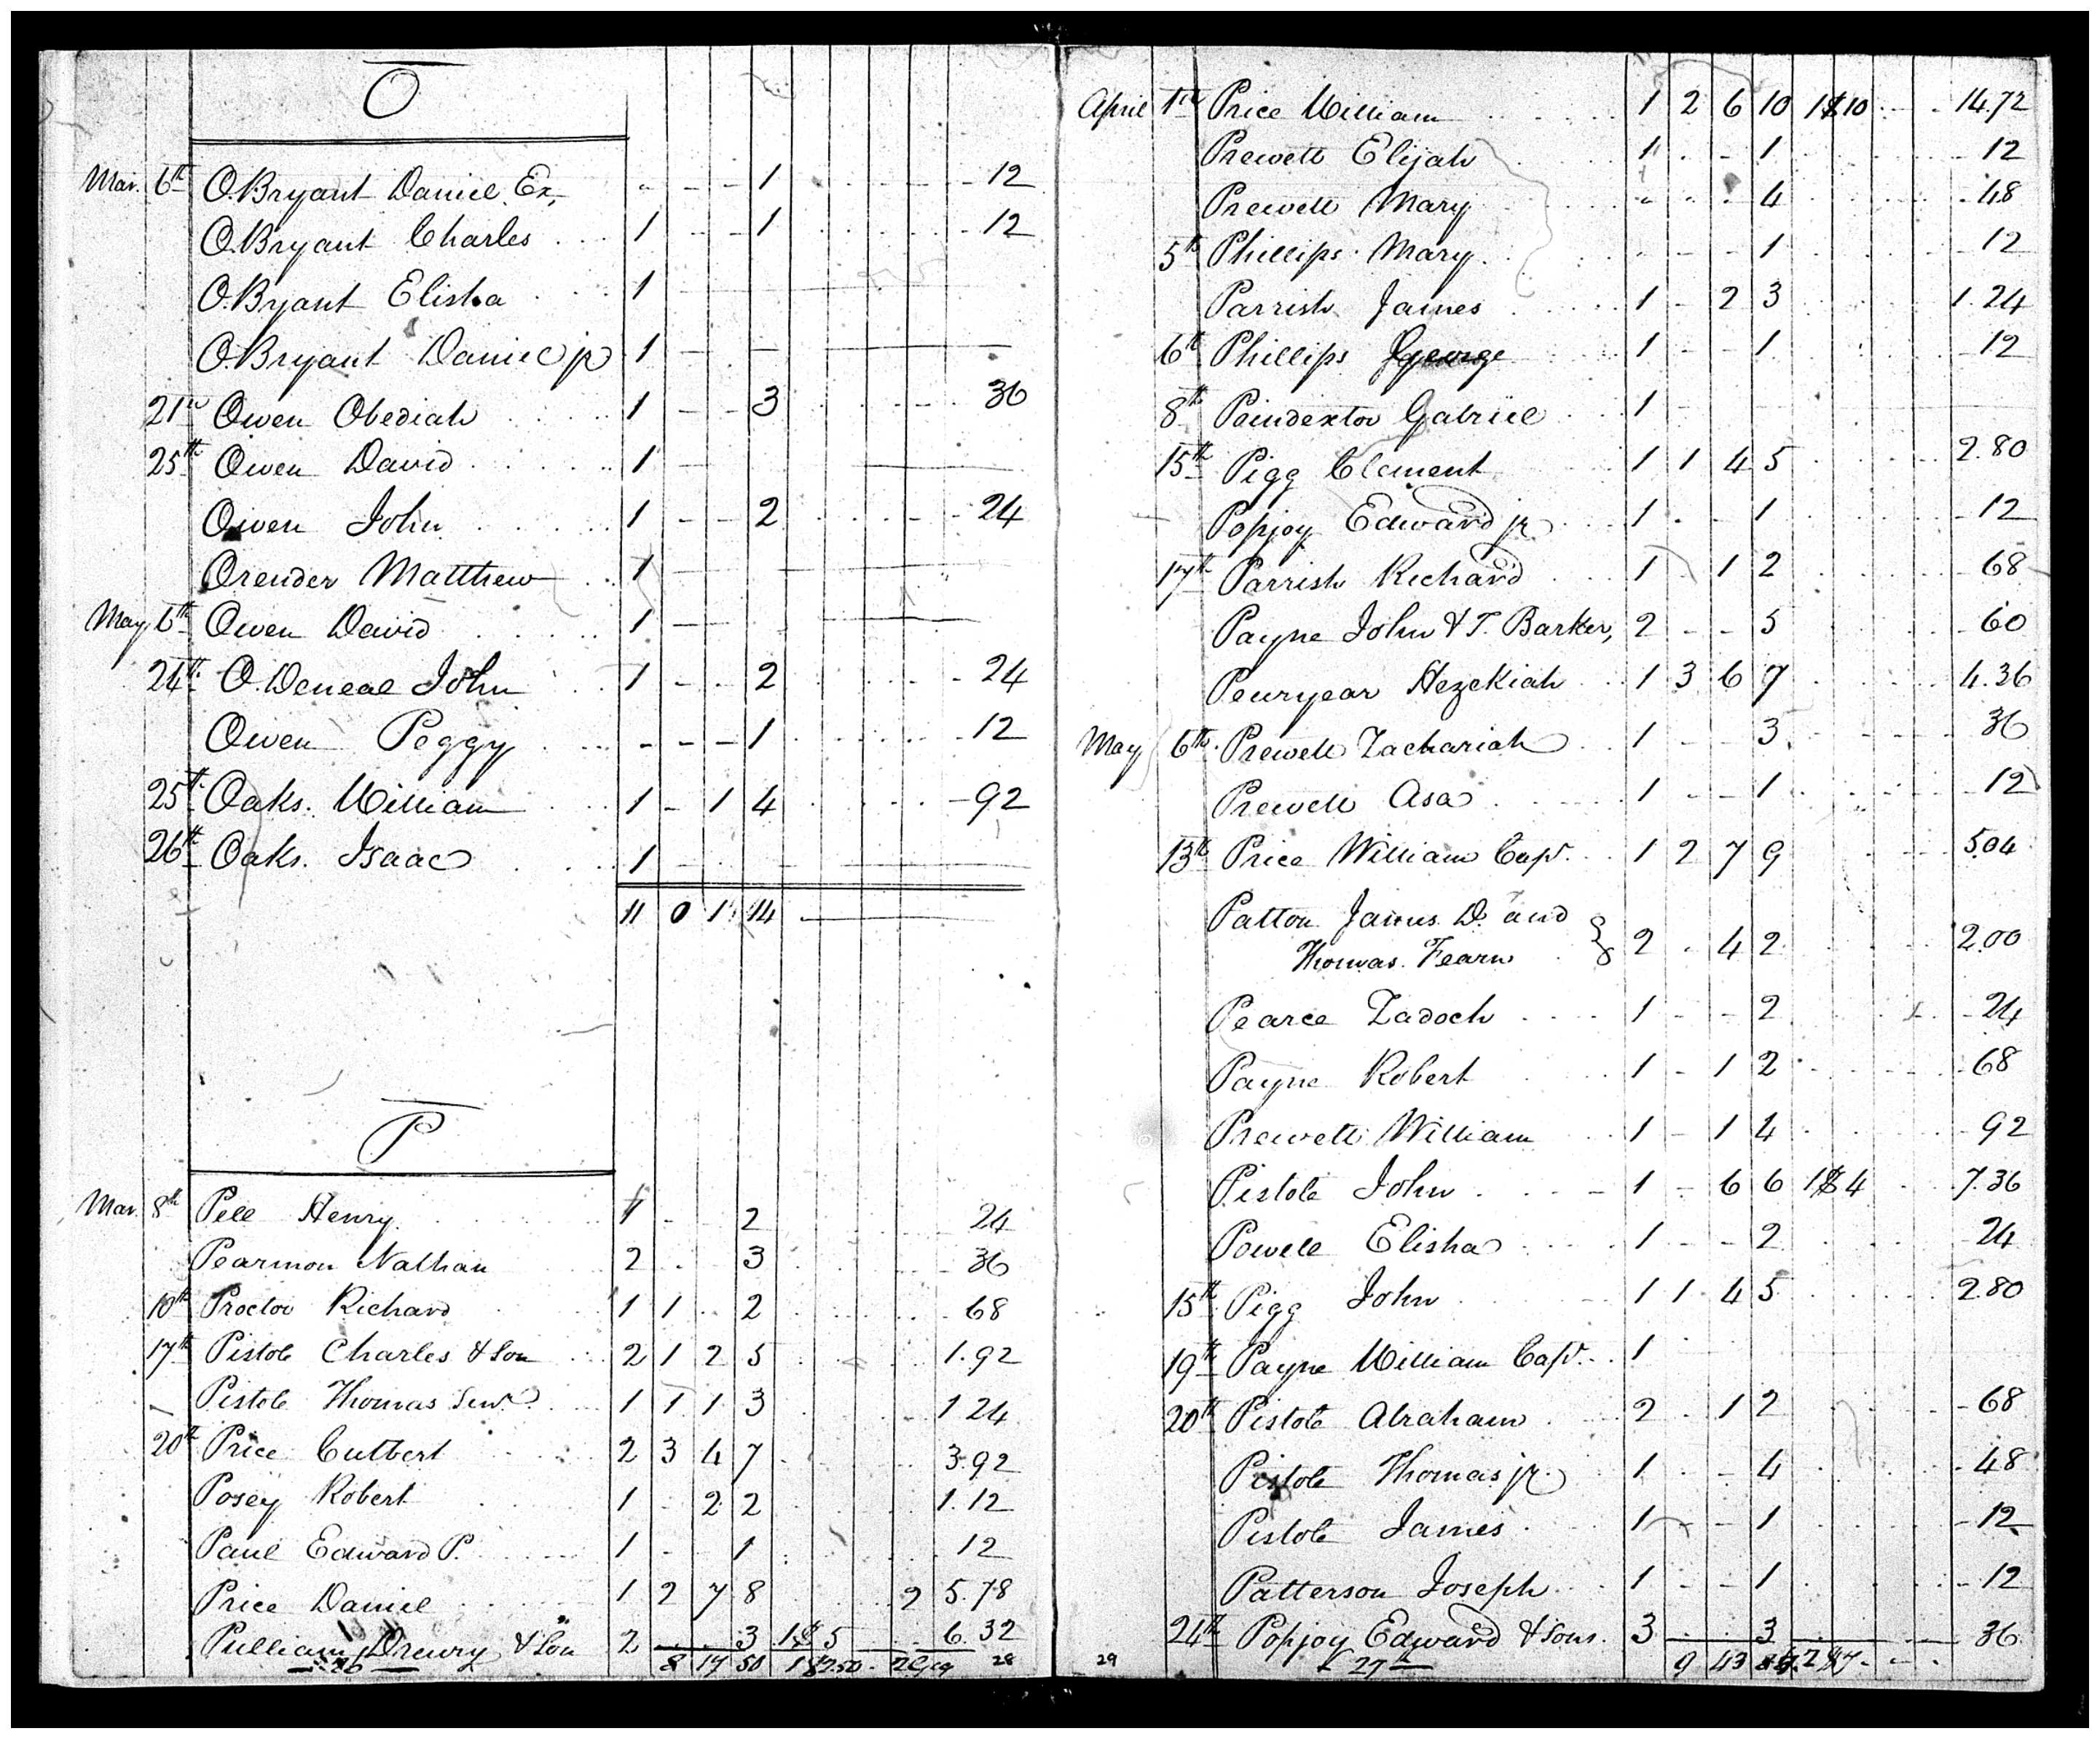 O
Mar. 6th O.Bryant Daniel Ex. - - - 1 12
O.Bryant Charles 1 - - 1 12
O.Bryant Elisha 1
O.Bryant Daniel jr 1
21st Owen Obediah 1 - - 3 36
25th Owen David 1
Owen John 1 - - 2 24
Orender Matthew 1
May 6th Owen David 1
24th O.Deneal John 1 - - 2 24
Owen Peggy - - - 1 12
25th Oaks. William 1 - 1 4 92
26th Oaks. Isaac 1
11 0 1 14
P
Mar. 8th Pell Henry 1 - 2 24
Pearmon Nathan 2 . 3 36
10th Proctor Richard 1 1 . 2 68
17th Pistole Charles & Son 2 1 2 5 1.92
Pistole Thomas Senr. 1 1 1 3 1 24
20th Price Cutbert 2 3 4 7 3.92
Posey Robert 1 - 2 2 1.12
Paul Edward P. 1 - 1 12
Price Daniel 1 2 7 8 2 5.78
Pulliam Drewry & Son 2 3 1$5 6.32
8 17 50 28
April 1st Price William 1 2 6 10 1$10 14.72
Prewett Elijah 1 . - 1 12
Prewett Mary - - . 4 48
5th Phillips Mary - - - 1 12
Parrish James 1 - 2 3 1.24
6th Phillips George 1 - - 1 12
8th Poindextor Gabriel 1
15th Pigg Clement 1 1 4 5 2.80
Popjoy Edward jr. 1 . - 1 12
17th Parrish Richard 1 . 1 2 68
Payne John & T. Barker, 2 - - 5 60
Puryear Hezekiah 1 3 6 7 4.36
May 6th Prewett Zachariah 1 - - 3 36
Prewett Asa 1 - - 1 12
13th Price William Capt. 1 2 7 9 5.04
Patton James D. and
Thomas. Fearn 2 . 4 2 2.00
Pearce Zadoch 1 - - 2 24
Payne Robert 1 - 1 2 68
Prewett William 1 - 1 4 92
Pistole John 1 - 6 6 1$4 7.36
Powell Elisha 1 - - 2 24
15th Pigg John 1 1 4 5 2.80
19th Payne William Capt. 1
20th Pistole Abraham 2 . 1 2 68
Pistole Thomas jr. 1 . - 4 48
Pistole James 1 - - 1 12
Patterson Joseph 1 - - 1 12
24th Popjoy Edward & Sons. 3 . . 3 36
29 27 9 43